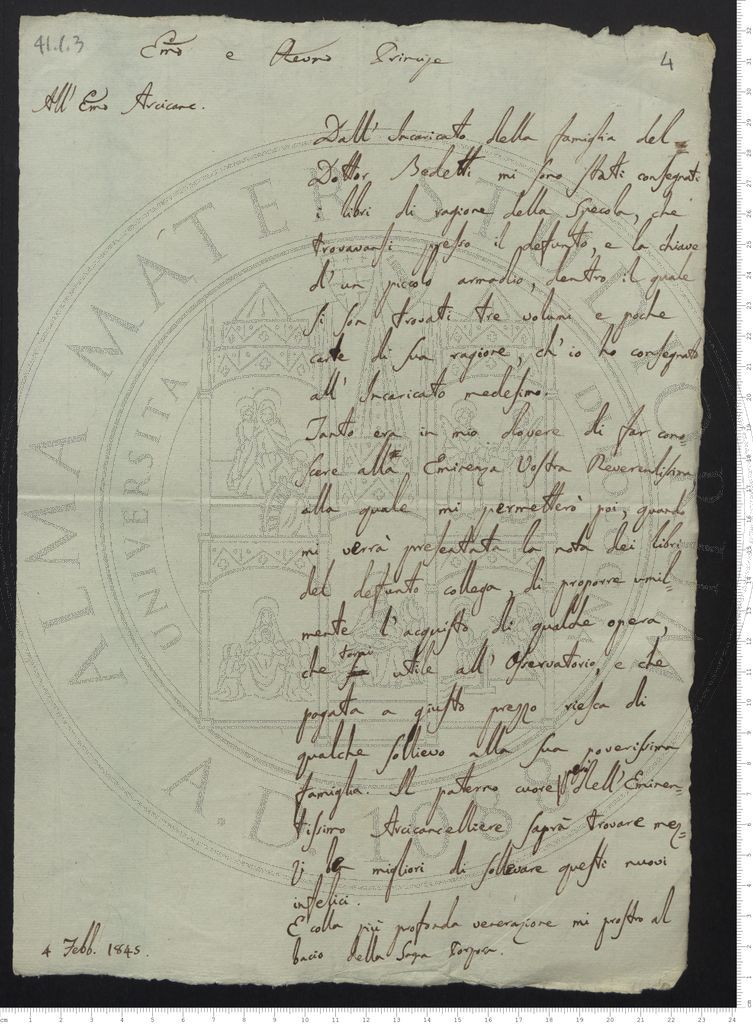 41.1.3
4
Emo e Revmo Principe
All' Emo Arcicanc.
Dall' Incaricato della famiglia del
Dottor Bedetti mi sono stati consegnati
i libri di ragione della Specola, che
trovavansi presso il defunto, e la chiave
d' un piccolo armadio, dentro il quale
si son trovati tre volumi e poche
carte di sua ragione, ch' io ho consegnato
all' Incaricato medesimo.
Tanto era in mio dovere di far cono
scere alla Eminenza Vostra Reverendissima
alla quale mi permetterò poi, quando
mi verrà presentata la nota dei libri
del defunto collega, di proporre umil=
mente l' acquisto di qualche opera,
che torni utile all' Osservatorio, e che
pagata a giusto prezzo riesca di
qualche sollievo alla sua poverissima
famiglia. Il paterno cuore poi dell' Eminen=
tissimo Arcicancelliere saprà trovare mez=
zi migliori di sollevare questi nuovi
infelici.
E colla più profonda venerazione mi prostro al
bacio della Sagra Porpora.
4 Febb. 1845.
ALMA MATER STUDIORUM
UNIVERSITÀ DI BOLOGNA
A.D. 1088